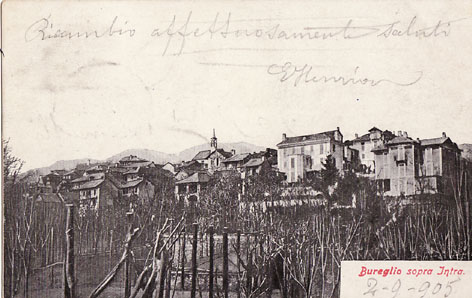 Ricambio affettuosamente saluti
Bureglio sopra Intra.
2-9-905